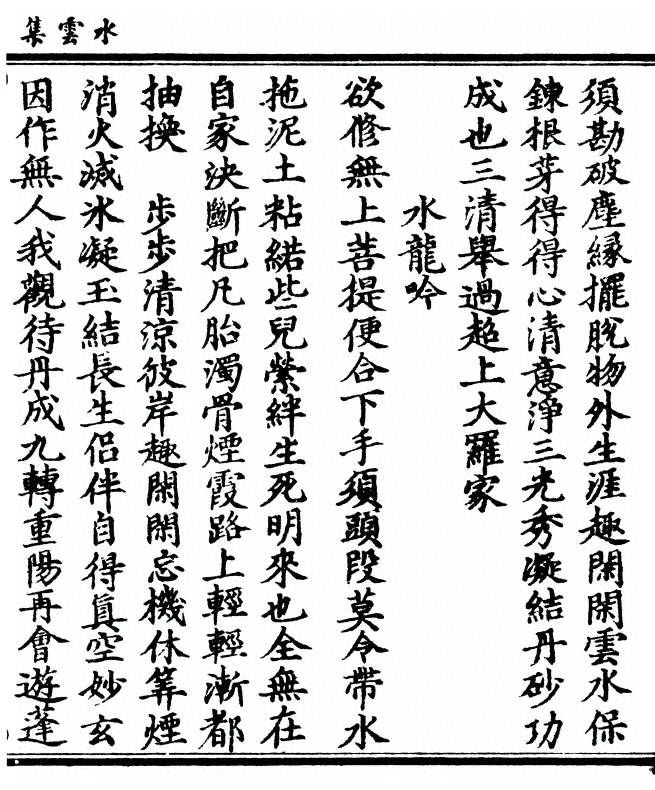 水雲集
須勘破塵緣擺脫物外生涯趣閑閑雲水保
鍊根芽得得心清意淨三光秀凝結丹砂功
成也三清舉過超上大羅家
水龍吟
欲修無上菩提便合下手須頭段莫令帶水
拖泥土粘緒些兒縈絆生死明來也全無在
自家決斷把凡胎濁骨煙霞路上輕輕漸都
抽換　步步清涼彼岸趣閑閑忘機休筭煙
消火滅氷凝玉結長生侶伴自得真空妙玄
因作無人我觀待丹成九轉重陽再會遊蓬